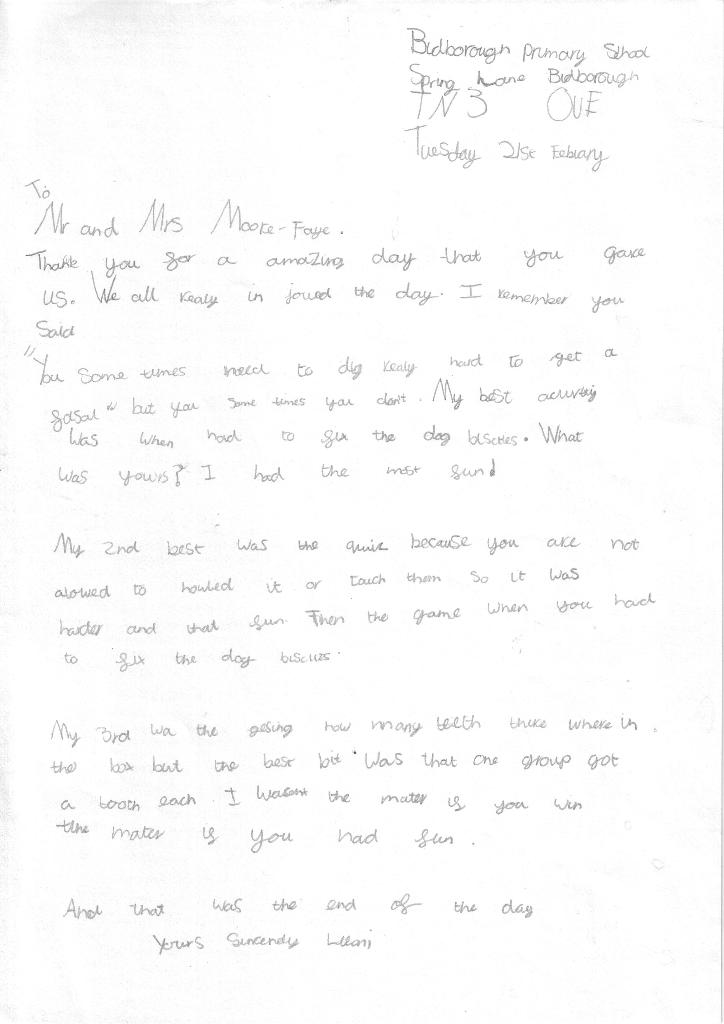 Bidborough Primary School
Spring Lane Bidborough
TN3 0UE
Tuesday 21st Febuary
To
Mr and Mrs Moore-Faye.
Thank you for a amazing day that you gave
us. We all realy in joued the day. I remember you
Said
"You Some times need to dig realy hard to get a
fosal" but you some times you don't. My best activity
Was when had to fix the dog biscties. What
Was yours? I had the most fun!
My 2nd best was the quiz because you are not
alowed to houled it or touch them so it was
harder and that fun. Then the game when you had
to fix the dog biscties.
My 3rd wa the gesing how many teeth there where in
the box but the best bit was that one group got
a tooth each. I wasent the mater if you win
the mater if you had fun.
And that was the end of the day
Yours Sincerely